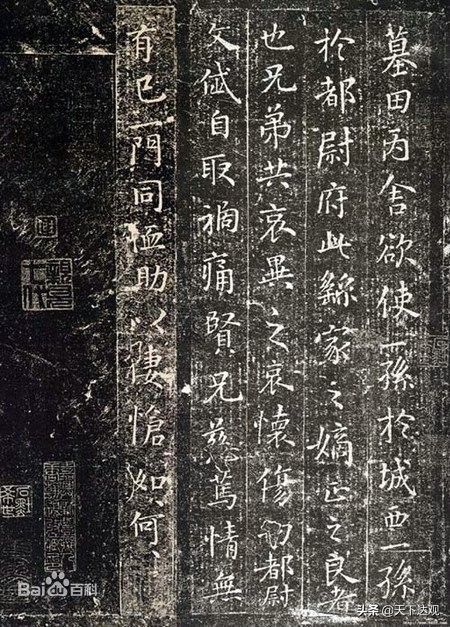 墓田丙舍欲使一孫於城西一孫
於都尉府此繇家之嫡正之良者
也兄弟共哀異之哀懷傷切都尉
文岱自取禍痛賢兄慈篤情無
有已一門同恤助以悽愴如何〻
Bai du 百科
头条 @天下达观